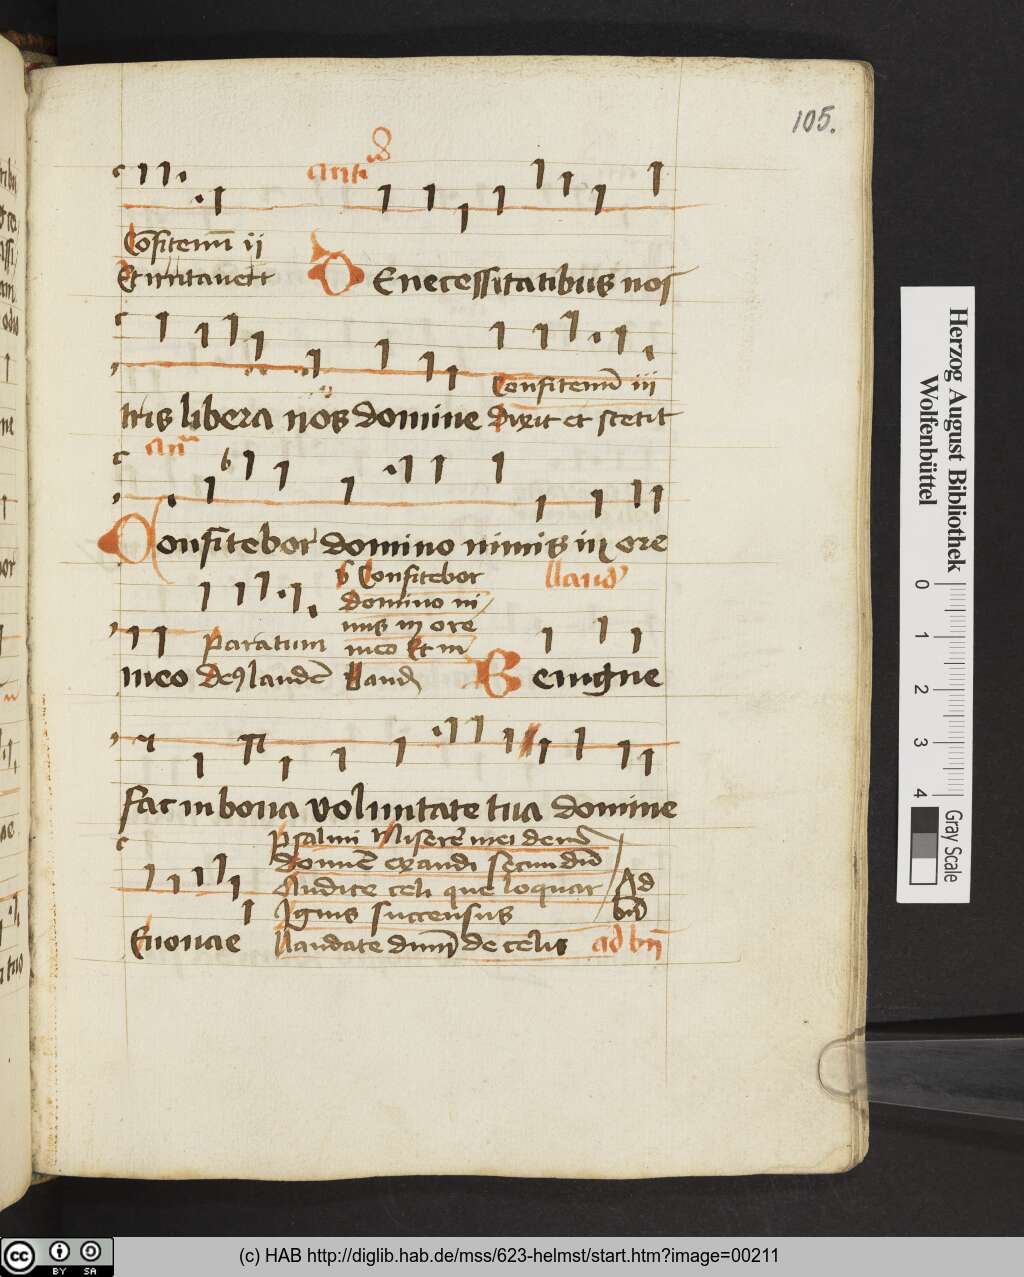 105.
anti
Cōfitemī ij
Et irritauert De necessitatibus nos
Confitemī iij
tris libera nos domine Dixit et stetit
anᵃ
Confitebor domino nimis in ore
Confitebor laud
domino ni
mis in ore
Paratum meo Et in
meo laud Benigne
fac in bona voluntate tua domine
Psalmi Miserē mei deus
domīe exandi secundū
Audite celi que loquar Ad
Ignis succensus bn̄
Euouae Laudate dūm de celis ad bn̄
Herzog August Bibliothek
Wolfenbüttel
0 1 2 3 4
Gray Scale
(c) HAB http://diglib.hab.de/mss/623-helmst/start.htm?image=00211
cc BY SA